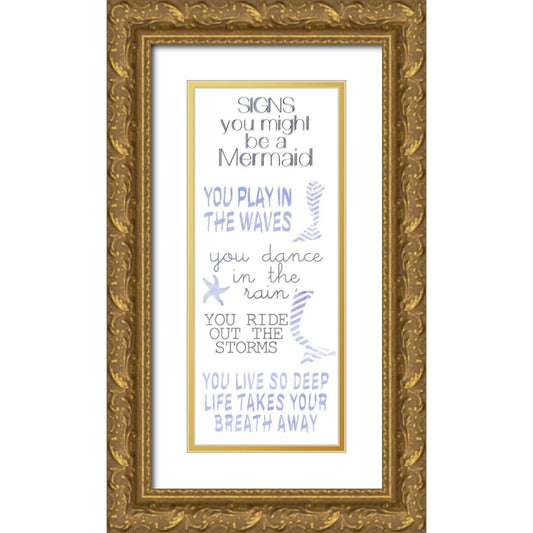 SIGNS
you might
be a
Mermaid
YOU PLAY IN
THE WAVES
you dance
in the
rain
YOU RIDE
OUT THE
STORMS
YOU LIVE SO DEEP
LIFE TAKES YOUR
BREATH AWAY